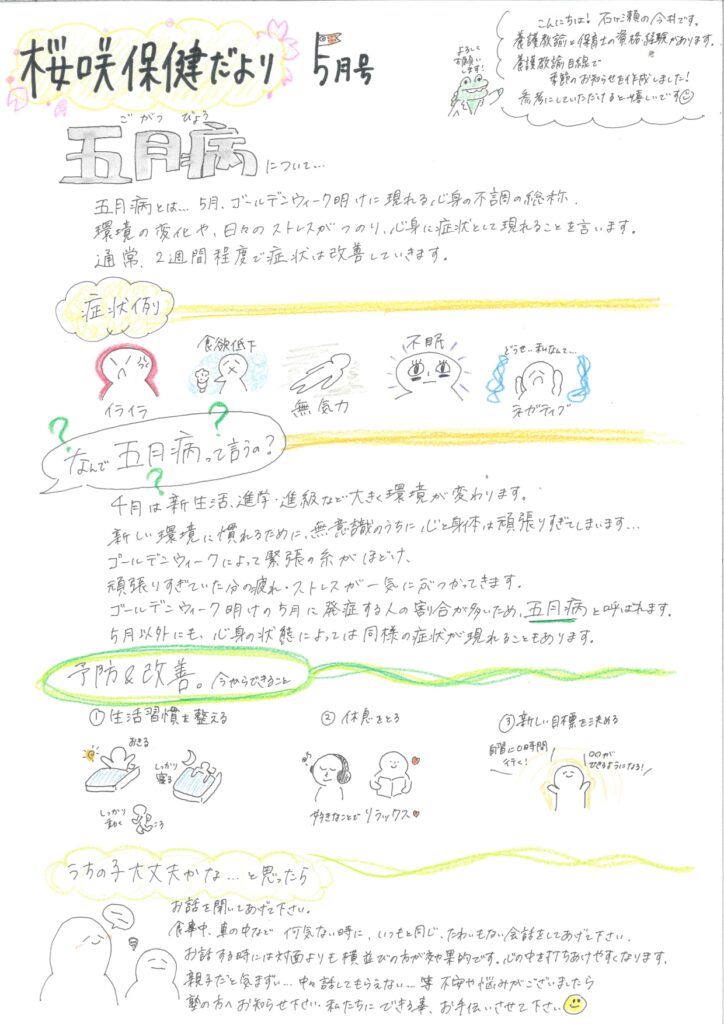 桜咲保健だより 5月号
よろしくお願いします!
こんにちは! 石ヶ瀬の今井です。
養護教諭と保育士の資格・経験があります。
養護教諭目線で
季節のお知らせを作成しました!
参考にしていただけると嬉しいです
ごがつ びょう
五月病について…
五月病とは… 5月、ゴールデンウィーク明けに現れる心身の不調の総称。
環境の変化や、日々のストレスがつのり、心身に症状として現れることを言います。
通常、2週間程度で症状は改善していきます。
症状例
イライラ
食欲低下
無気力
不眠
どうせ…私なんて…
ネガティブ
なんで五月病って言うの?
4月は新生活、進学・進級など大きく環境が変わります。
新しい環境に慣れるために、無意識のうちに心と身体は頑張りすぎてしまいます…
ゴールデンウィークによって緊張の糸がほどけ、
頑張りすぎていた分の疲れ・ストレスが一気にぶつかってきます。
ゴールデンウィーク明けの5月に発症する人の割合が多いため、五月病と呼ばれます。
5月以外にも、心身の状態によっては同様の症状が現れることもあります。
予防&改善。今からできること
①生活習慣を整える
おきる
しっかり寝る
しっかり動く
②休息をとる
好きなことでリラックス
③新しい目標を決める
自習に〇時間行く!
〇〇ができるようになる!
うちの子大丈夫かな…と思ったら
お話を聞いてあげて下さい。
食事中、車の中など 何気ない時に、いつもと同じ、たわいもない会話をしてあげて下さい。
お話する時には対面よりも横並びの方が効果的です。心の中を打ちあけやすくなります。
親子だと気まずい…中々話してもらえない…等 不安や悩みがございましたら
塾の方へお知らせ下さい。私たちにできる事、お手伝いさせて下さい